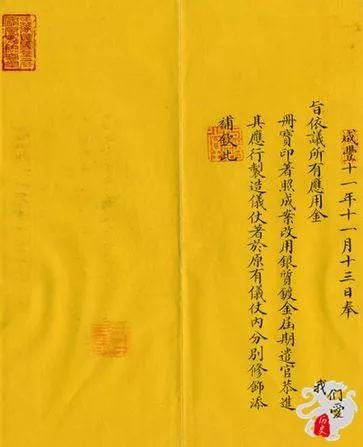 咸豐十一年十一月十三日奉
旨依議所有應用金
冊寶印著照成案改用銀質鍍金屆期遣官恭進
其應行製造儀仗著於原有儀仗內分別修飾添
補欽此
我們愛
歷史